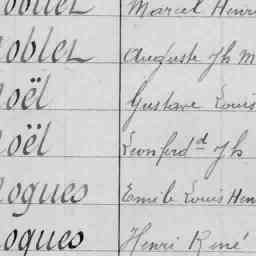 oblet Marcel Henri
oblet Auguste Jh M
oël Gustave Louis
oël Leon ferd^d Jh
ogues Emile Louis Hen
ogues Henri René